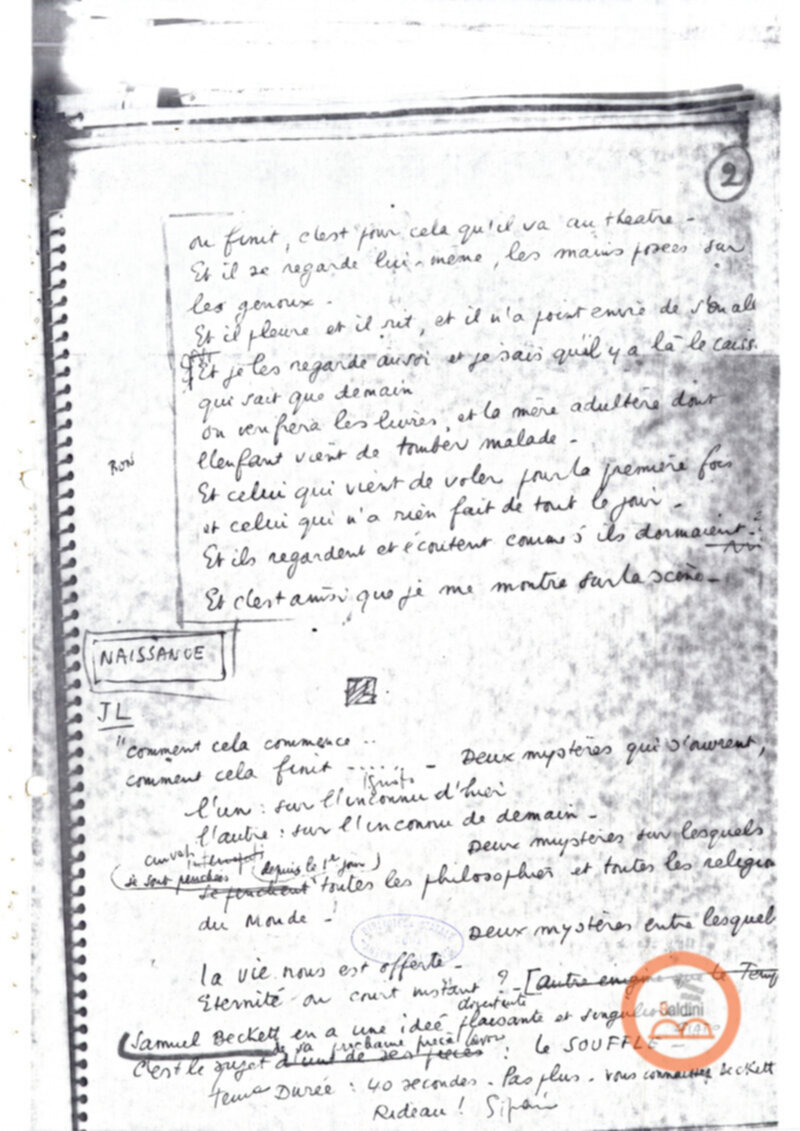 2
on finit, c'est pour cela qu'il va au theatre -
Et il se regarde lui-même, les mains posées sur
les genoux -
Et il pleure et il rit, et il n'a point envie de s'en all
Et je les regarde aussi et je sais qu'il y a là le caiss
qui sait que demain
on verifiera les livres, et la mère adultère dont
l'enfant vient de tomber malade -
RON
Et celui qui vient de voler pour la première fois
et celui qui n'a rien fait de tout le jour -
Et ils regardent et écoutent comme s'ils dormaient -
Et c'est ainsi que je me montre sur la scène -
NAISSANCE
JL
"comment cela commence ..
comment cela finit ...... - Deux mystères qui s'ouvrent,
l'un : sur l'inconnu d'hier
l'autre : sur l'inconnu de demain -
Deux mystères sur lesquels
(se sont penchées (depuis le 1er jour)
se penchent toutes les philosophies et toutes les religion
du Monde - !
Deux mystères entre lesquel
la vie nous est offerte -
Eternité ou court instant ? - [autre enigme que le Temp
divertente
Samuel Beckett en a une ideé plaisante et singulière
de sa prochaine pièce
C'est le sujet d'une de ses pièces : le SOUFFLE -
tema Durée : 40 secondes - Pas plus - vous connaissez Beckett
Rideau ! Sipario
Baldini